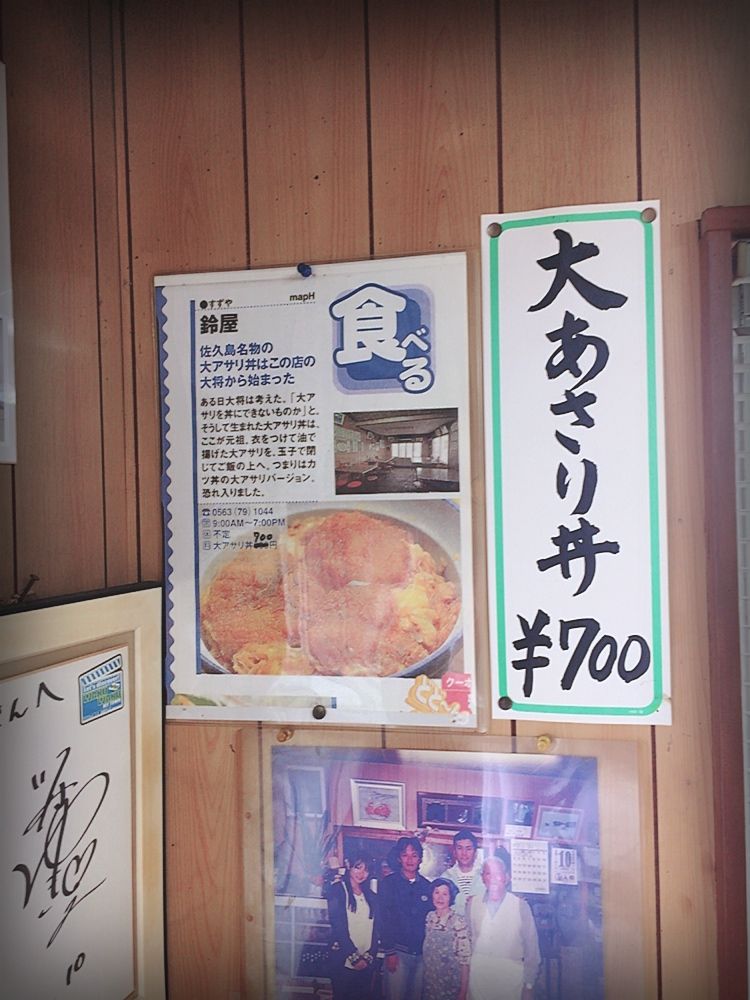 ●すずや
mapH
鈴屋
食べる
佐久島名物の
大アサリ丼はこの店の
大将から始まった
ある日大将は考えた。「大ア
サリを丼にできないものか」と。
そうして生まれた大アサリ丼は、
ここが元祖。衣をつけて油で
揚げた大アサリを、玉子で閉
じてご飯の上へ。つまりはカ
ツ丼の大アサリバージョン。
恐れ入りました。
☎0563(79)1044
9:00AM〜7:00PM
不定
大アサリ丼700円
クーポ
大あさり丼
¥700
さんへ
10
10